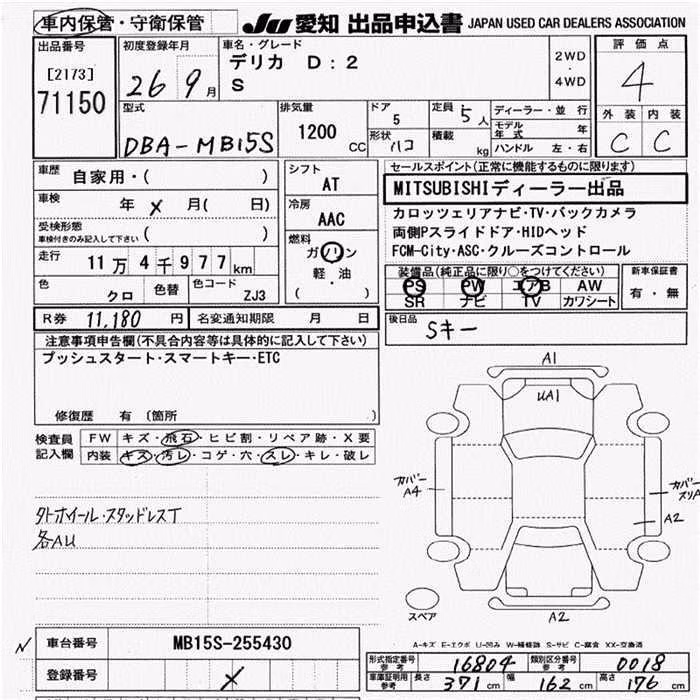 車内保管・守衛保管 JU 愛知 出品申込書 JAPAN USED CAR DEALERS ASSOCIATION
出品番号 初度登録年月 車名・グレード 評価点
[2173] 26 9月 デリカ D:2 2WD・4WD 4
71150 S
型式 排気量 ドア 定員 ディーラー・並行 外装 内装
DBA-MB15S 1200 CC 5 5人 モデル年式 年 C C
形状 ハコ 積載 kg ハンドル 左・右
車歴 自家用・( ) シフト AT セールスポイント(正常に機能するものに限ります)
車検 年 × 月( 日) 冷房 AAC MITSUBISHIディーラー出品
受検形態 ( ) カロッツェリアナビ・TV・バックカメラ
車検付きのみ記入して下さい 燃料 両側Pスライドドア・HIDヘッド
走行 11万4千977km ガソリン FCM-City・ASC・クルーズコントロール
色 クロ 色替 色コード ZJ3 軽・油 ( )
装備品(純正品に限り○をつけてください) 新車保証書
PS PW エアB AW 有・無
SR ナビ TV カワシート
R券 11,180 円 名変通知期限 月 日 後日品 Sキー
注意事項申告欄(不具合内容等は具体的に記入して下さい)
プッシュスタート・スマートキー・ETC
修復歴 有 (箇所 )
検査員記入欄 FW キズ・飛石・ヒビ割・リペア跡・X要
内装 キズ・汚レ・コゲ・穴・スレ・キレ・破レ
外ホイール・スタッドレスT
各AU
A1
UA1
カバー A4
カバー スリA
A2
スペア
A2
A-キズ E-エクボ U-凹み W-補修跡 S-サビ C-腐食 XX-交換済
車台番号 MB15S-255430
登録番号 ×
型式指定番号 参考 16804 類別区分番号 参考 0018
車庫証明用 参考 長さ 371cm 幅 162cm 高さ 176cm